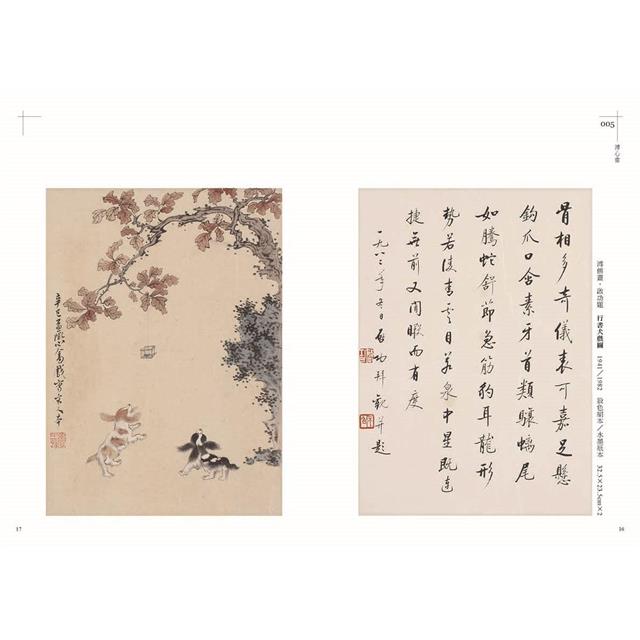 005
溥心畬
溥儒畫・啟功題 行書犬戲圖 1941／1982 設色絹本／水墨紙本 32.5×23.5cm×2
骨相多奇儀表可嘉足懸
鈎爪口含素牙首類驤螭尾
如騰蛇舒節急筋豹耳龍形
勢若淩青雲目若泉中星既迅
捷無前又閒暇而有度
一九八二年冬日啟功拜觀並題
16
辛巳孟心畬戲寫宋人本
17